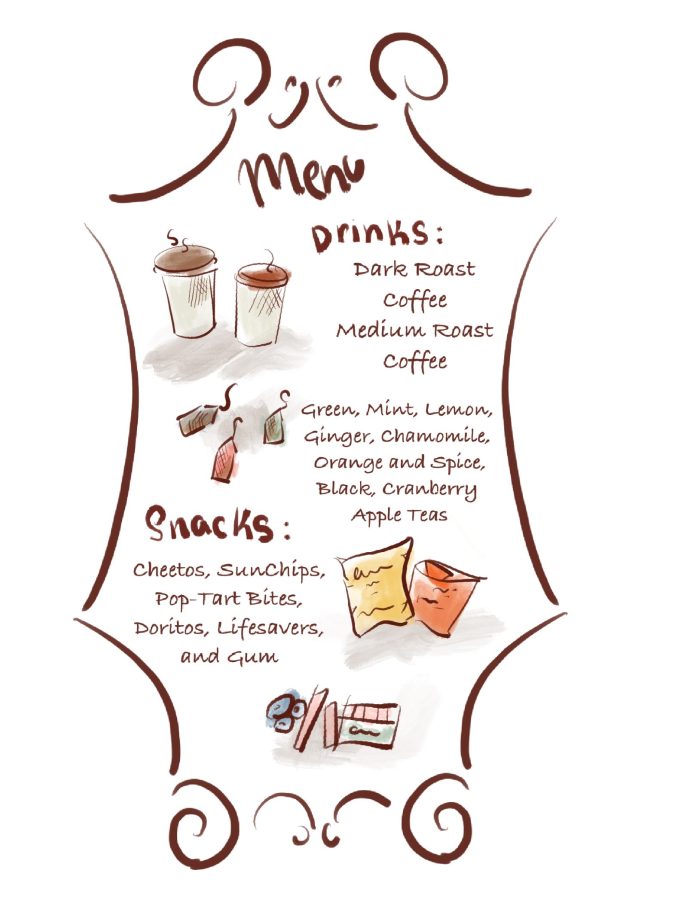 Menu
Drinks:
Dark Roast
Coffee
Medium Roast
Coffee
Green, Mint, Lemon,
Ginger, Chamomile,
Orange and Spice,
Black, Cranberry
Apple Teas
Snacks:
Cheetos, SunChips,
Pop-Tart Bites,
Doritos, Lifesavers,
and Gum